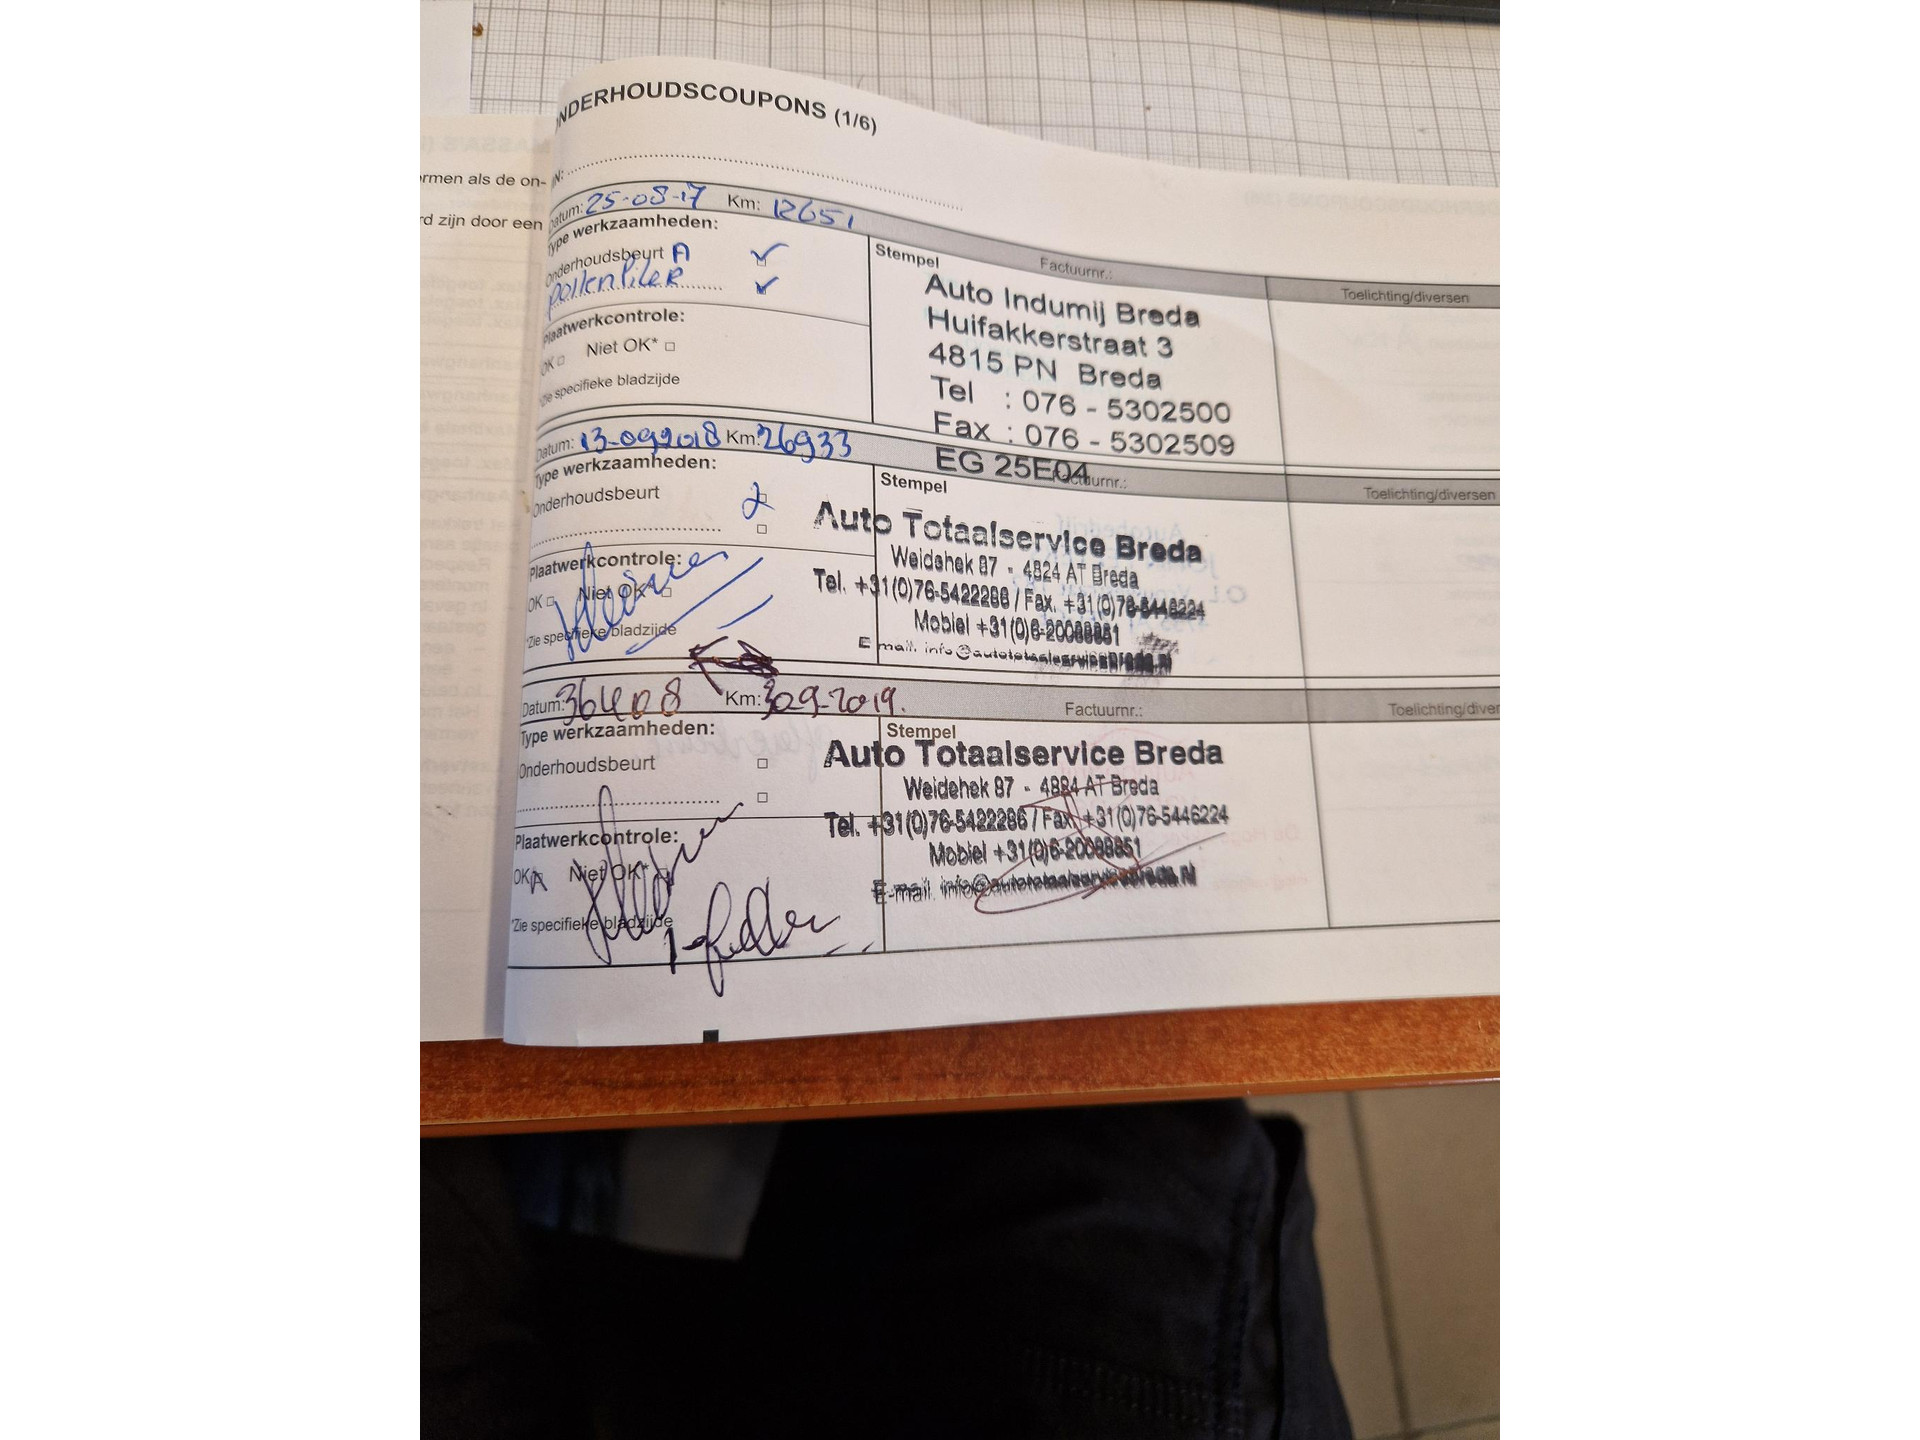 NDERHOUDSCOUPONS (1/6)
rmen als de on-
rd zijn door een
N:
Datum: 25-08-17 Km: 12651
Type werkzaamheden:
Onderhoudsbeurt A
pollenfilter
Plaatwerkcontrole:
OK Niet OK*
*Zie specifieke bladzijde
Stempel Factuurnr.: Toelichting/diversen
Auto Indumij Breda
Huifakkerstraat 3
4815 PN Breda
Tel : 076 - 5302500
Fax : 076 - 5302509
EG 25E04
Datum: 13-092018 Km: 26933
Type werkzaamheden:
Onderhoudsbeurt
Plaatwerkcontrole:
OK Niet OK*
*Zie specifieke bladzijde
Stempel Factuurnr.: Toelichting/diversen
Auto Totaalservice Breda
Weidehek 87 - 4824 AT Breda
Tel. +31(0)76-5422286 / Fax. +31(0)76-5446224
Mobiel +31(0)6-20088851
E-mail. info@autototaalservicebreda.nl
Datum: 36408 Km: 309-2019.
Type werkzaamheden:
Onderhoudsbeurt
Plaatwerkcontrole:
OK Niet OK*
*Zie specifieke bladzijde
Stempel Factuurnr.: Toelichting/diver
Auto Totaalservice Breda
Weidehek 87 - 4824 AT Breda
Tel. +31(0)76-5422286 / Fax. +31(0)76-5446224
Mobiel +31(0)6-20088851
E-mail. info@autototaalservicebreda.nl